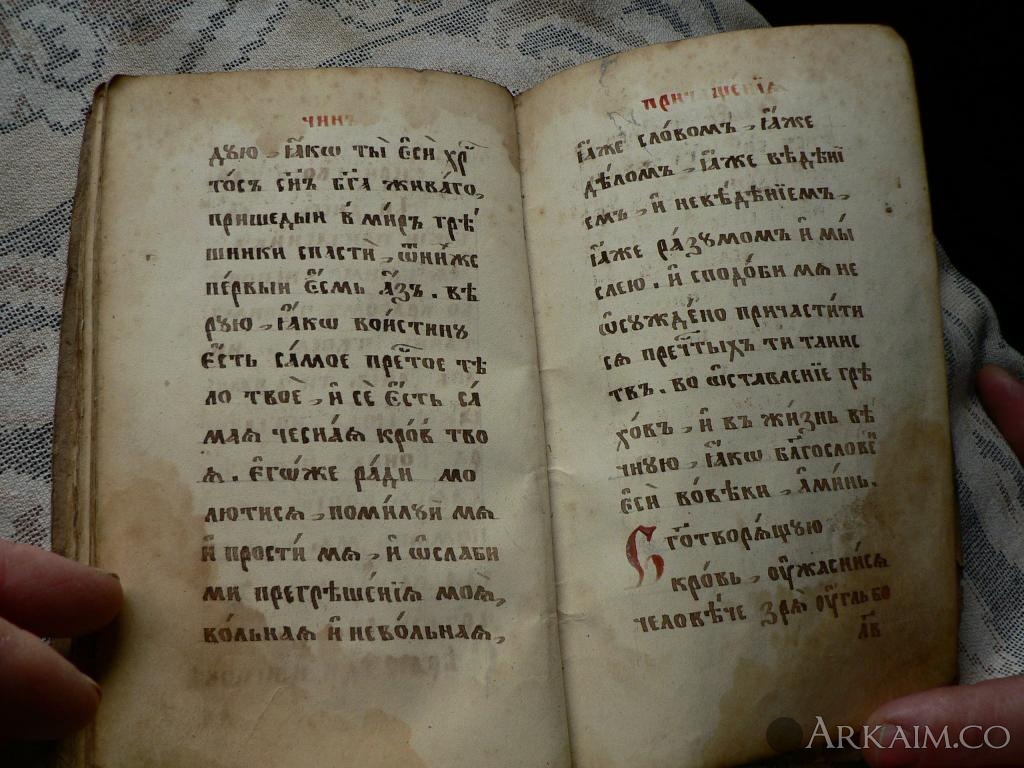 чинъ
дꙋю, ꙗ҆́кѡ ты̀ є҆сѝ хрⷭ҇
тосъ сн҃ъ бг҃а живаго,
пришедыи в̾ ми́ръ грѣ́
шники спастѝ, ѿни́хже
пе́рвыи є҆́смь а҆́зъ. вѣ
рꙋю, ꙗ҆́кѡ вои́стинꙋ
є҆́сть са́мое пречⷭ҇тое тѣ
ло твоѐ, и҆ сѐ є҆́сть са́
маѧ чеснáѧ кро́в̾ тво
ѧ̀. є҆гѡ́же ра́ди мо
лютисѧ, поми́лꙋй мѧ
и҆ прости́ мѧ, и҆ ѡ҆слаби
ми прегрѣше́нїѧ моѧ̀,
во́льнаѧ и҆ нево́льнаѧ,
причащенїѧ
ꙗ҆́же сло́вомъ, ꙗ҆́же
дѣ́ломъ, ꙗ҆́же вѣ́дѣнї
емъ, и҆ невѣ́дѣнїемъ,
ꙗ҆́же ра́зꙋмомъ и҆ мы́
слею. и҆ сподо́би мѧ не
ѡ҆сꙋжде́но причасти́ти
сѧ пречⷭ҇тыхъ ти таинс
твъ. во ѡ҆ставле́нїе грѣ
хо́въ, и҆ въ жи́знь вѣ́
чнꙋю, ꙗ҆́кѡ бл҃гослове́
є҆сѝ во́вѣки, а҆ми́нь.
Бг҃отворѧ́щꙋю
кро́вь, ᲂу҆жасни́сѧ
человѣ́че зрѧ̀ ᲂу҆́гль бо
л҃в
ARKAIM.CO